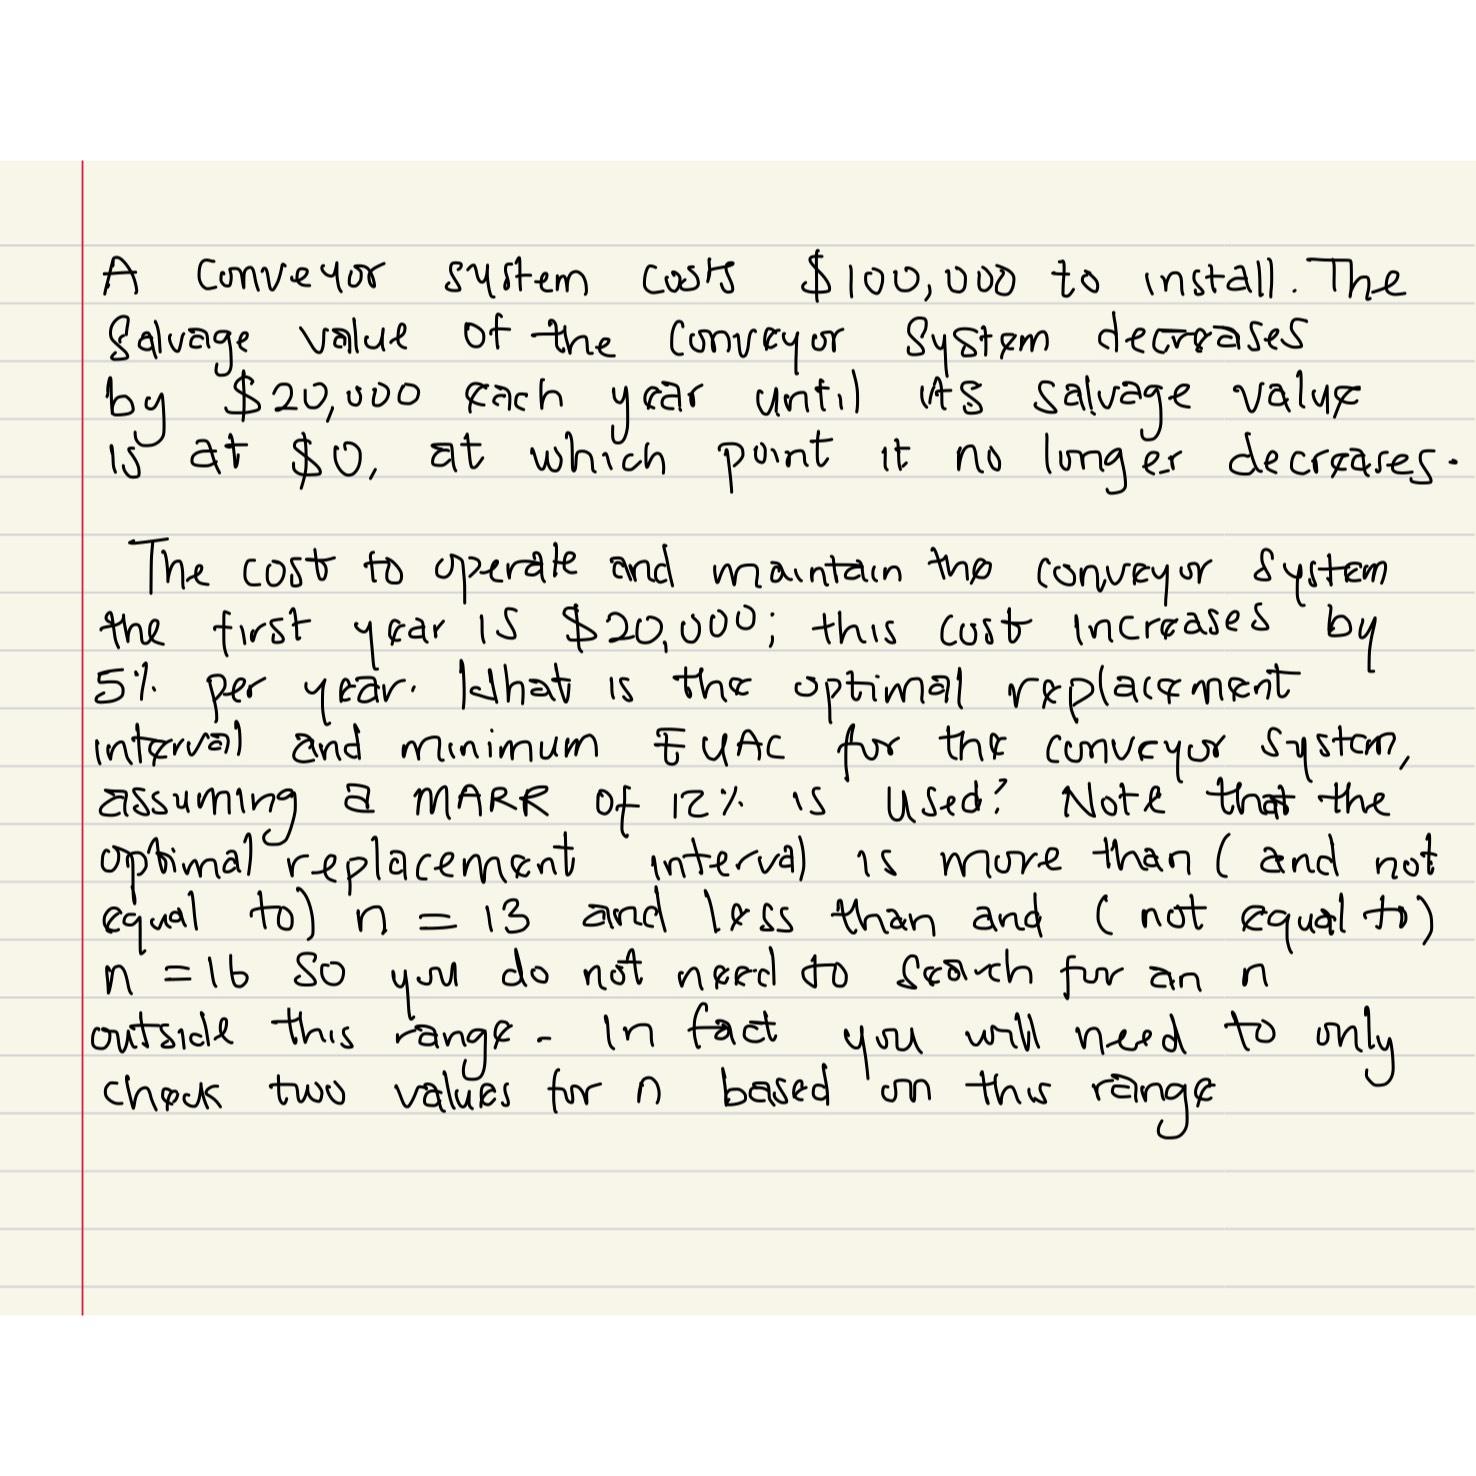 A conveyor system costs $100,000 to install. The
Salvage value of the conveyor System decreases
by $20,000 each year until its salvage value
is at $0, at which point it no longer decreases.
The cost to operate and maintain the conveyor System
the first year is $20,000; this cost increases by
5% per year. What is the optimal replacement
interval and minimum EUAC for the conveyor system,
assuming a MARR of 12% is used? Note that the
optimal replacement interval is more than (and not
equal to) n = 13 and less than and (not equal to)
n = 16 so you do not need to search for an n
outside this range - In fact you will need to only
check two values for n based on this range